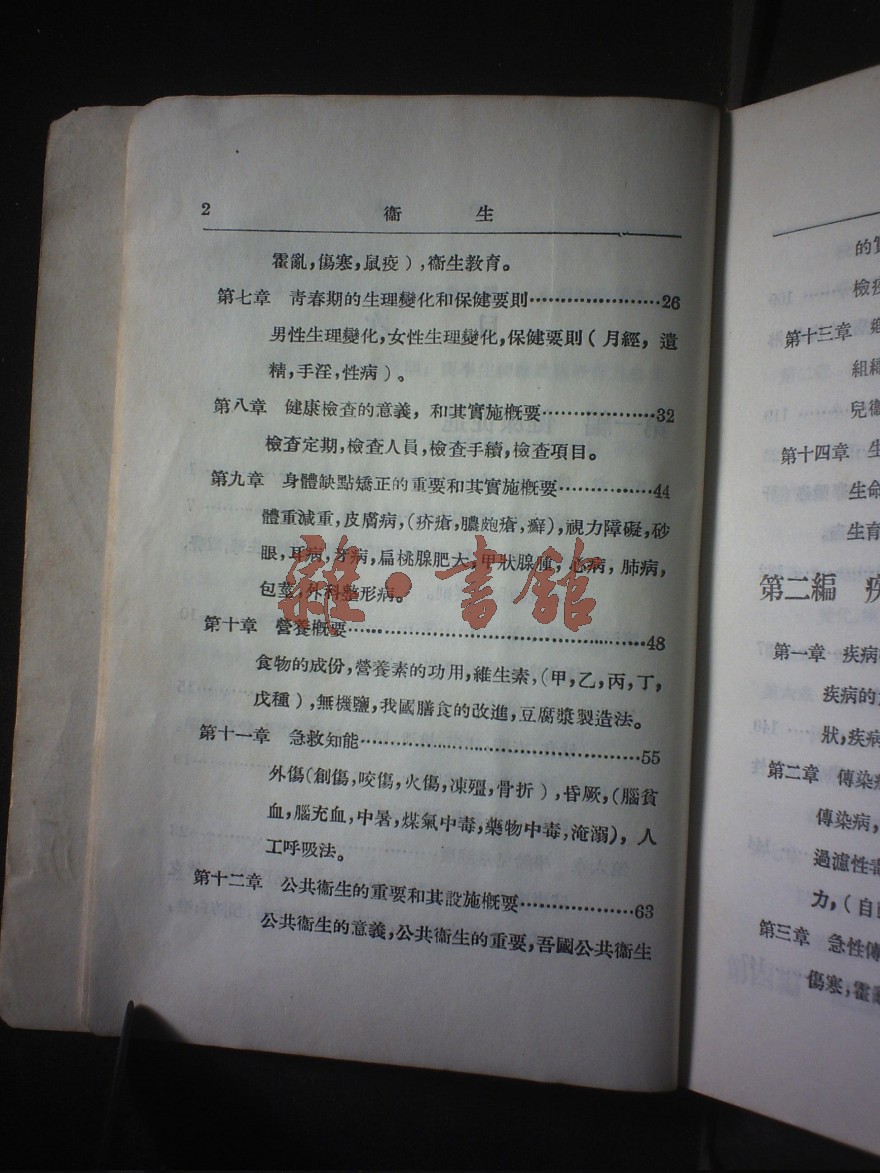 2
衞 生
霍亂,傷寒,鼠疫),衞生教育。
第七章 青春期的生理變化和保健要則…………………26
男性生理變化,女性生理變化,保健要則(月經,遺
精,手淫,性病)。
第八章 健康檢查的意義,和其實施概要………………32
檢查定期,檢查人員,檢查手續,檢查項目。
第九章 身體缺點矯正的重要和其實施概要……………44
體重減重,皮膚病,(疥瘡,膿皰瘡,癬),視力障礙,砂
眼,耳病,牙病,扁桃腺肥大,甲狀腺腫,心病,肺病,
包莖,外科整形病。
第十章 營養概要…………………………………………48
食物的成份,營養素的功用,維生素,(甲,乙,丙,丁,
戊種),無機鹽,我國膳食的改進,豆腐漿製造法。
第十一章 急救知能………………………………………55
外傷(創傷,咬傷,火傷,凍殭,骨折),昏厥,(腦貧
血,腦充血,中暑,煤氣中毒,藥物中毒,淹溺),人
工呼吸法。
第十二章 公共衞生的重要和其設施概要………………63
公共衞生的意義,公共衞生的重要,吾國公共衞生
雜·書館
的
檢疫
第十三章
組織
兒
第十四章 生
生命
生育
第二編
第一章 疾病
疾病的
狀,疾病
第二章 傳染
傳染病,
過濾性
力,(自
第三章 急性傳
傷寒,霍